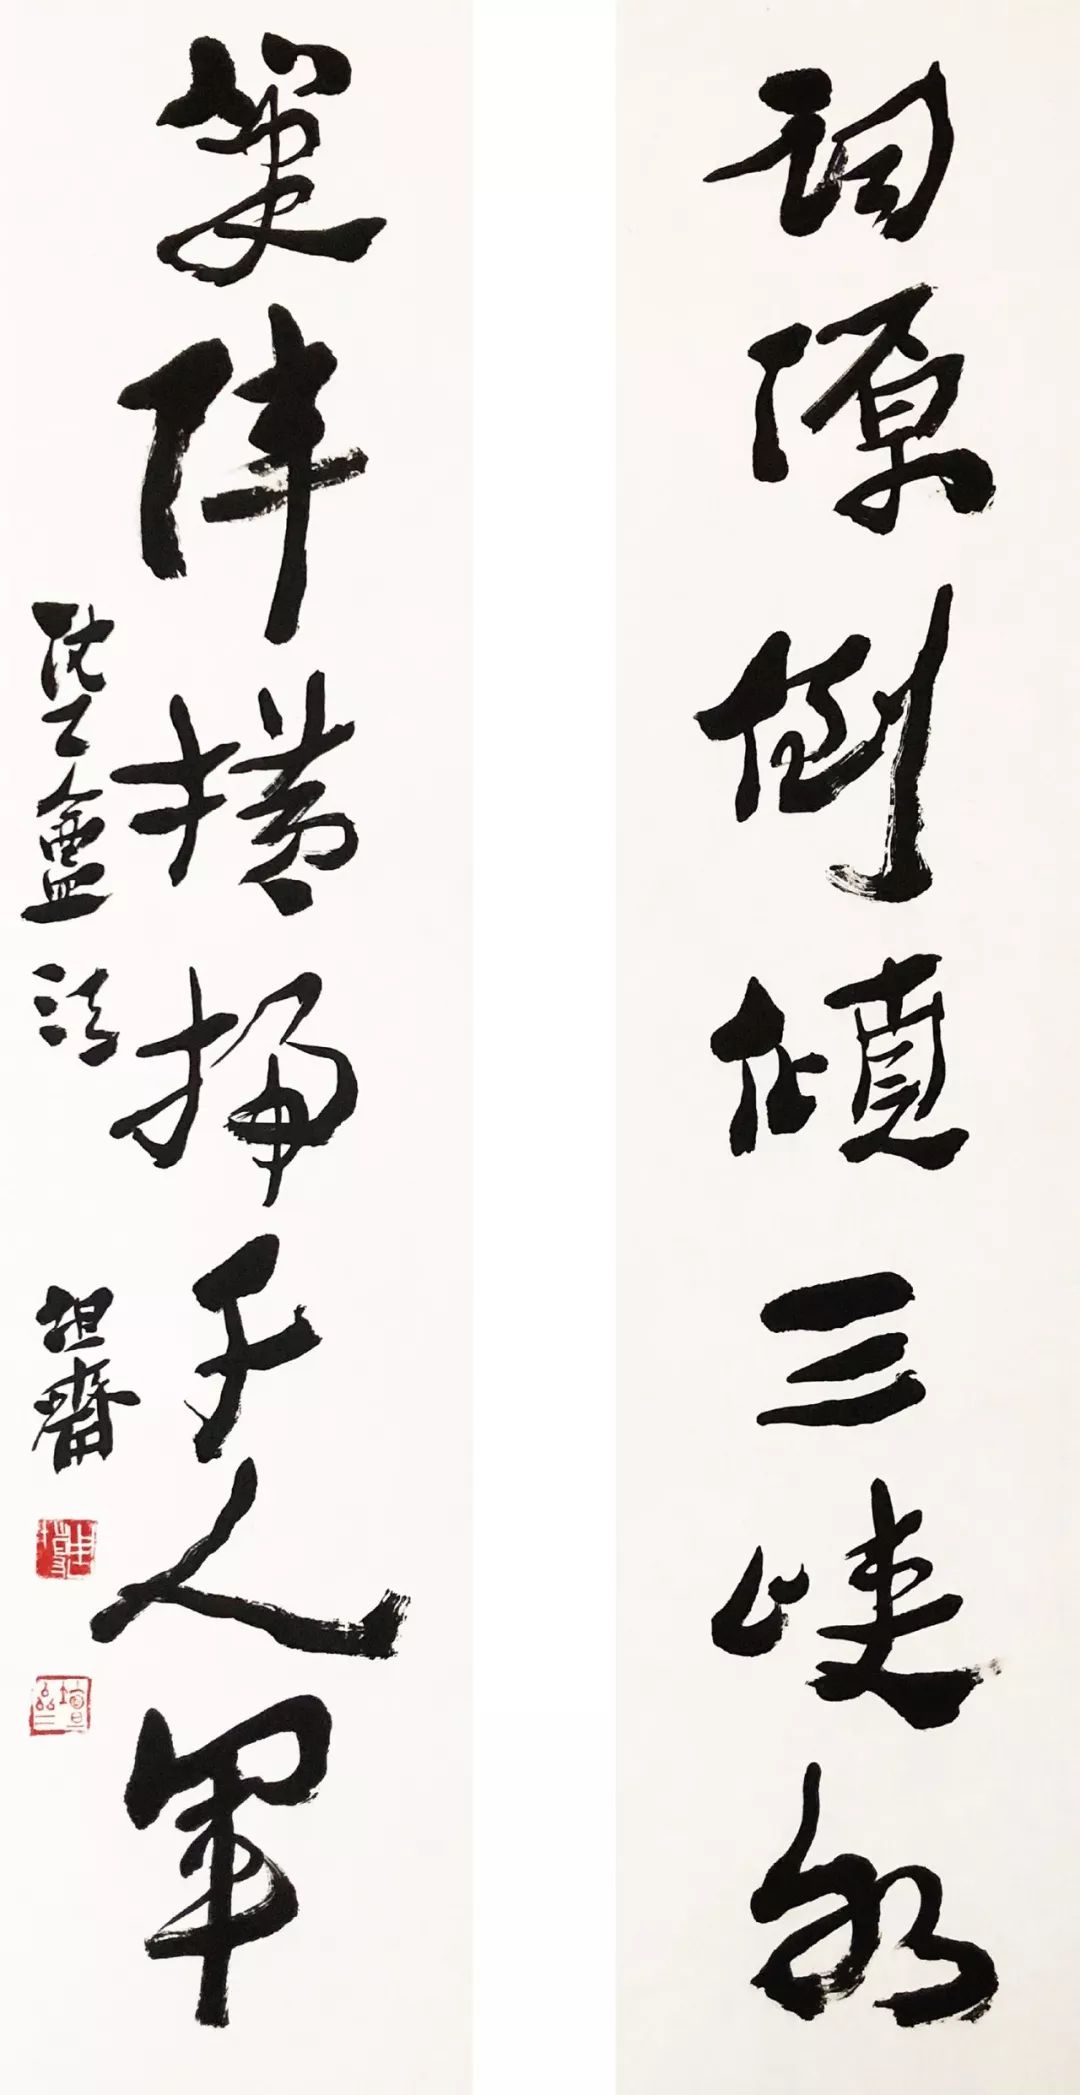 詞源倒傾三峽水
筆陣橫掃千人軍
盦法
坦齋